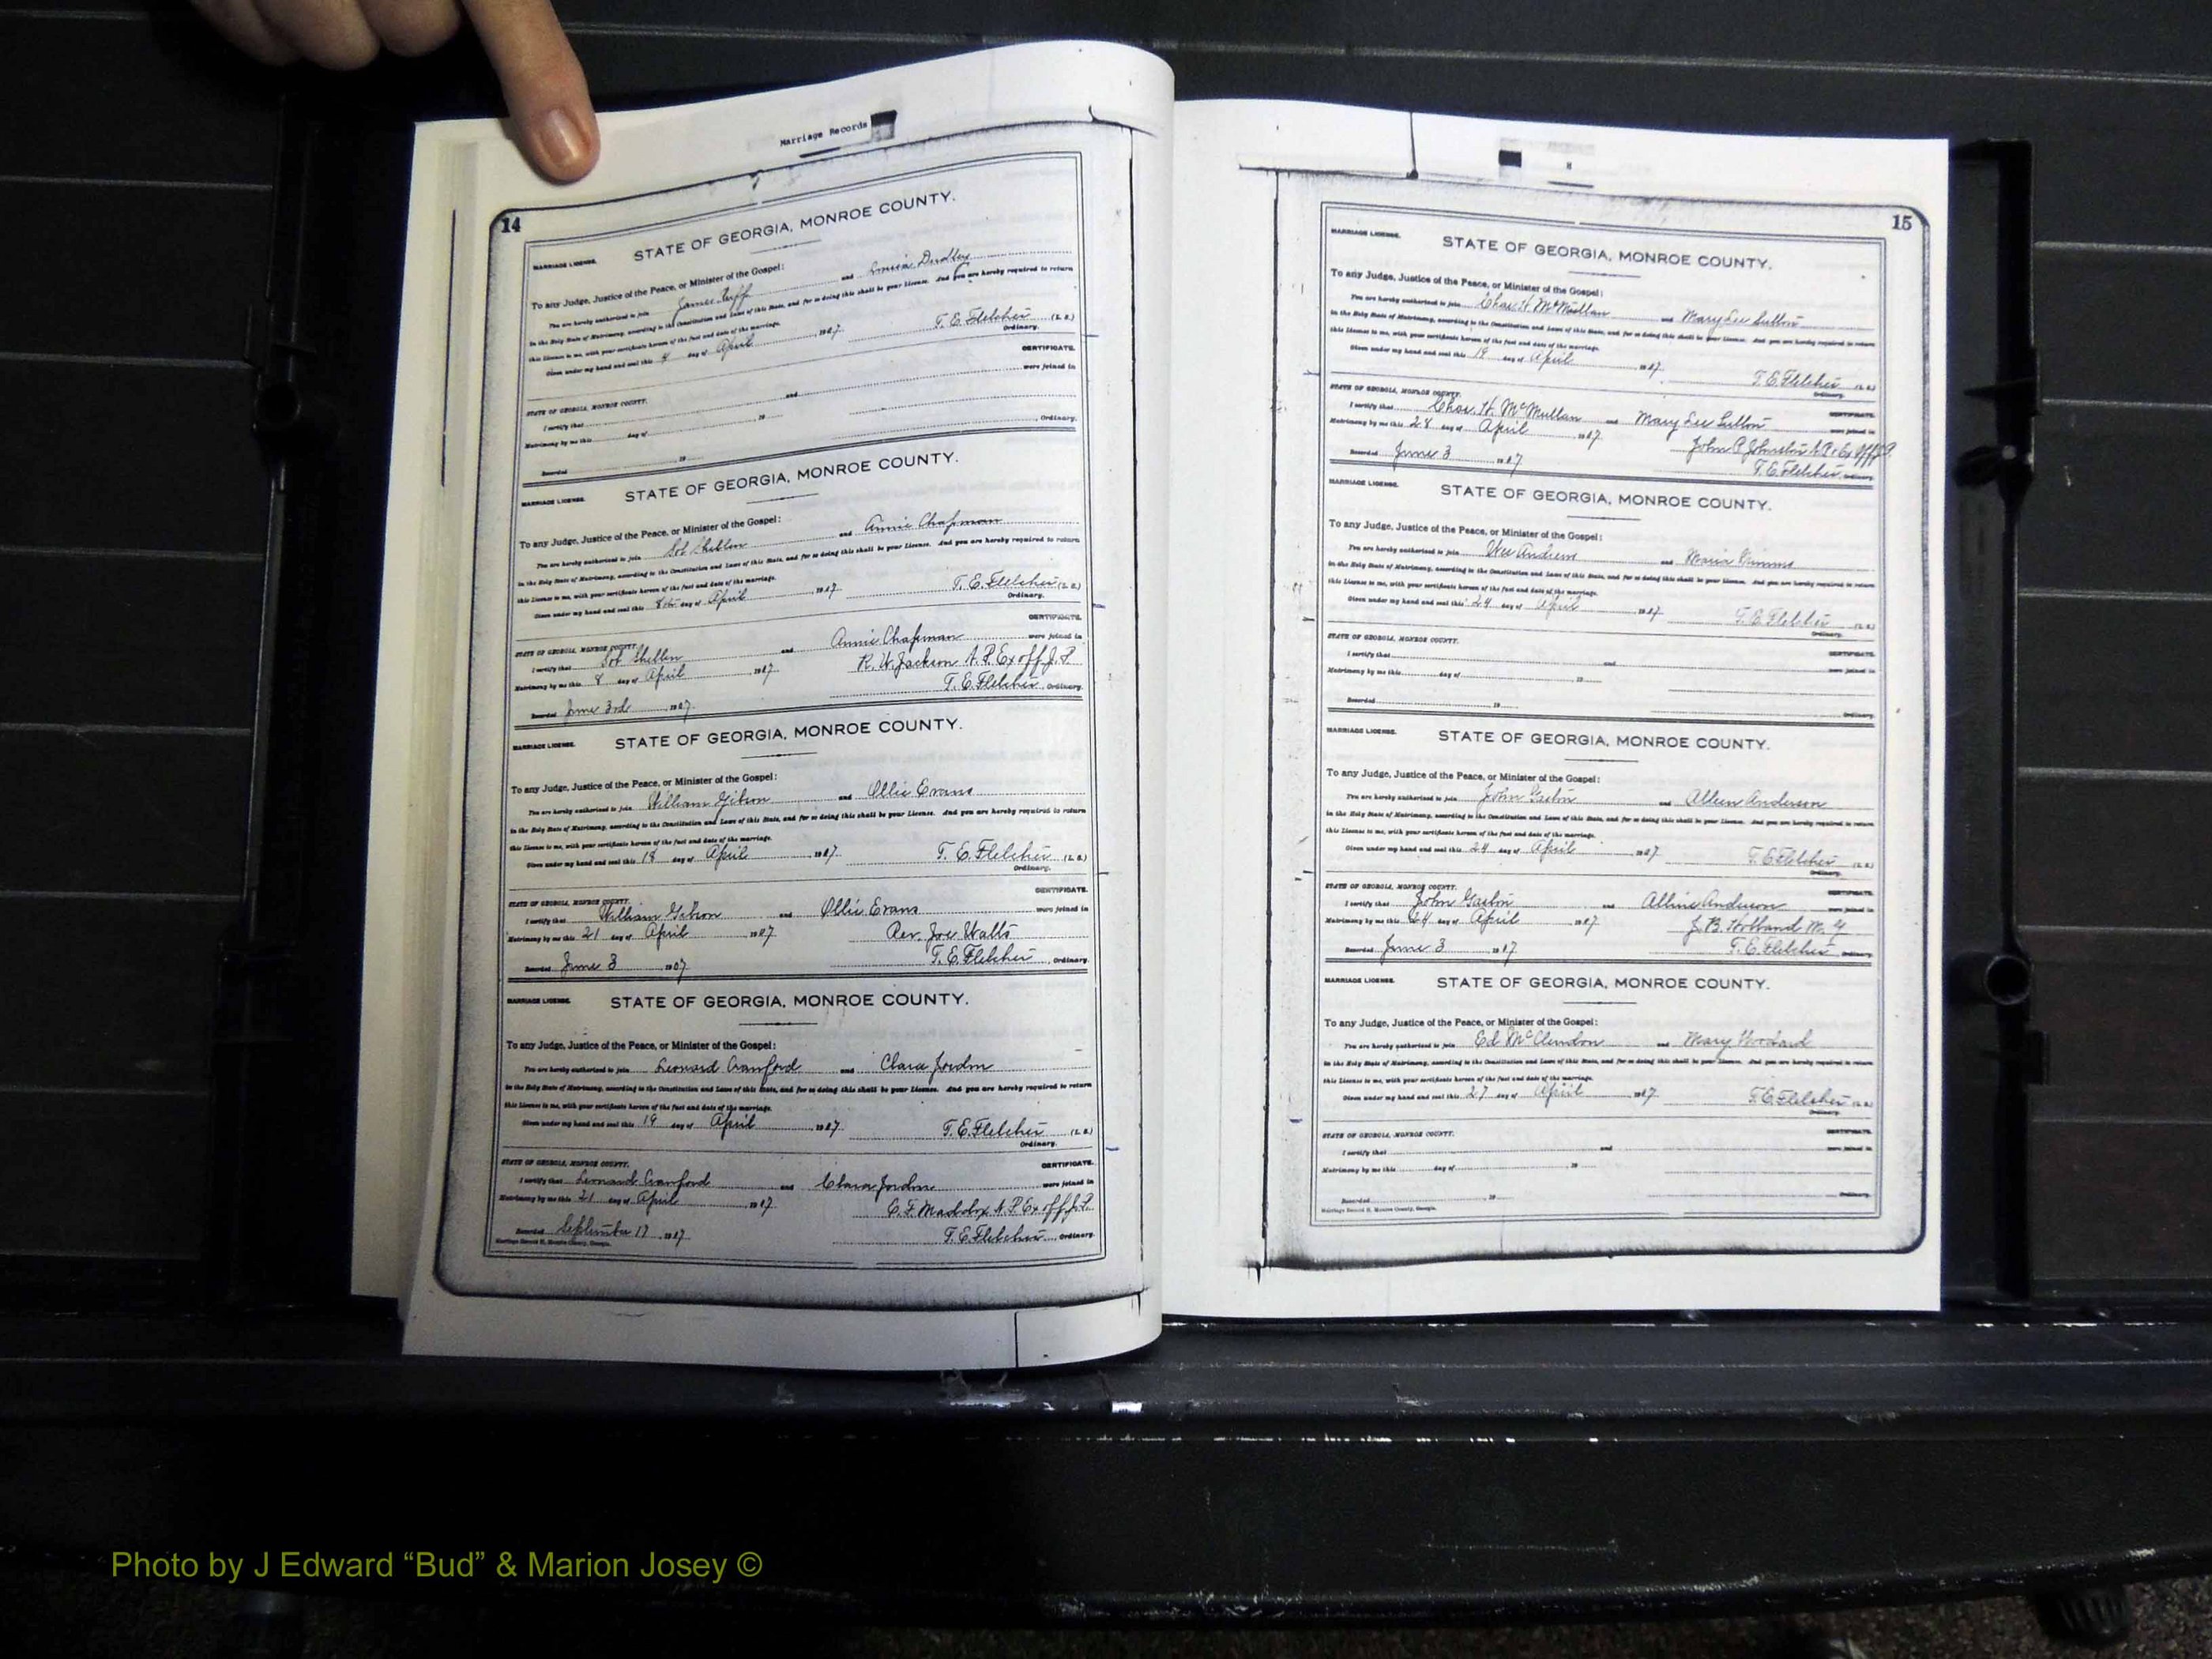 Marriage Records
14
STATE OF GEORGIA, MONROE COUNTY.
MARRIAGE LICENSE.
To any Judge, Justice of the Peace, or Minister of the Gospel:
You are hereby authorized to join James and Dudley
in the Holy State of Matrimony, according to the Constitution and Laws of this State, and for so doing this shall be your License. And you are hereby required to return
this License to me, with your certificate hereon of the fact and date of the marriage.
Given under my hand and seal this 4 day of April 1907 T. E. Fletcher (L. S.)
Ordinary.
CERTIFICATE.
STATE OF GEORGIA, MONROE COUNTY.
I certify that and were joined in
Matrimony by me this day of 19
Recorded 19 , Ordinary.
STATE OF GEORGIA, MONROE COUNTY.
MARRIAGE LICENSE.
To any Judge, Justice of the Peace, or Minister of the Gospel:
You are hereby authorized to join and Annie Chapman
in the Holy State of Matrimony, according to the Constitution and Laws of this State, and for so doing this shall be your License. And you are hereby required to return
this License to me, with your certificate hereon of the fact and date of the marriage.
Given under my hand and seal this 8th day of April 1907 T. E. Fletcher (L. S.)
Ordinary.
CERTIFICATE.
STATE OF GEORGIA, MONROE COUNTY.
I certify that and Annie Chapman were joined in
Matrimony by me this 8 day of April 1907 R. W. Jackson N.P. Ex off J.P.
Recorded June 3rd 1907 T. E. Fletcher Ordinary.
STATE OF GEORGIA, MONROE COUNTY.
MARRIAGE LICENSE.
To any Judge, Justice of the Peace, or Minister of the Gospel:
You are hereby authorized to join William Gibson and Ollie Evans
in the Holy State of Matrimony, according to the Constitution and Laws of this State, and for so doing this shall be your License. And you are hereby required to return
this License to me, with your certificate hereon of the fact and date of the marriage.
Given under my hand and seal this 18 day of April 1907 T. E. Fletcher (L. S.)
Ordinary.
CERTIFICATE.
STATE OF GEORGIA, MONROE COUNTY.
I certify that William Gibson and Ollie Evans were joined in
Matrimony by me this 21 day of April 1907 Rev. Joe Watts
Recorded June 3 1907 T. E. Fletcher , Ordinary.
MARRIAGE LICENSE. STATE OF GEORGIA, MONROE COUNTY.
To any Judge, Justice of the Peace, or Minister of the Gospel:
You are hereby authorized to join Leonard Cranford and Clara Jordon
in the Holy State of Matrimony, according to the Constitution and Laws of this State, and for so doing this shall be your License. And you are hereby required to return
this License to me, with your certificate hereon of the fact and date of the marriage.
Given under my hand and seal this 19 day of April 1907 T. E. Fletcher (L. S.)
Ordinary.
STATE OF GEORGIA, MONROE COUNTY. CERTIFICATE.
I certify that Leonard Cranford and Clara Jordon were joined in
Matrimony by me this 21 day of April 1907 C. F. Maddox N.P. Ex off J.P.
Recorded September 17 1907 T. E. Fletcher Ordinary.
Marriage Record H, Monroe County, Georgia.
H
15
MARRIAGE LICENSE. STATE OF GEORGIA, MONROE COUNTY.
To any Judge, Justice of the Peace, or Minister of the Gospel:
You are hereby authorized to join Chas. H. McMullan and Mary Lee Sutton
in the Holy State of Matrimony, according to the Constitution and Laws of this State, and for so doing this shall be your License. And you are hereby required to return
this License to me, with your certificate hereon of the fact and date of the marriage.
Given under my hand and seal this 19 day of April 1907 T. E. Fletcher (L. S.)
Ordinary.
STATE OF GEORGIA, MONROE COUNTY. CERTIFICATE.
I certify that Chas. H. McMullan and Mary Lee Sutton were joined in
Matrimony by me this 28 day of April 1907 John P. Johnston N.P. & Ex Off J.P.
Recorded June 3 1907 T. E. Fletcher, Ordinary.
MARRIAGE LICENSE. STATE OF GEORGIA, MONROE COUNTY.
To any Judge, Justice of the Peace, or Minister of the Gospel:
You are hereby authorized to join Andrews and Maria
in the Holy State of Matrimony, according to the Constitution and Laws of this State, and for so doing this shall be your License. And you are hereby required to return
this License to me, with your certificate hereon of the fact and date of the marriage.
Given under my hand and seal this 24 day of April 1907 T. E. Fletcher (L. S.)
Ordinary.
STATE OF GEORGIA, MONROE COUNTY. CERTIFICATE.
I certify that and were joined in
Matrimony by me this day of 19
Recorded 19 Ordinary.
MARRIAGE LICENSE. STATE OF GEORGIA, MONROE COUNTY.
To any Judge, Justice of the Peace, or Minister of the Gospel:
You are hereby authorized to join John Gaston and Alleen Anderson
in the Holy State of Matrimony, according to the Constitution and Laws of this State, and for so doing this shall be your License. And you are hereby required to return
this License to me, with your certificate hereon of the fact and date of the marriage.
Given under my hand and seal this 24 day of April 1907 T. E. Fletcher (L. S.)
Ordinary.
STATE OF GEORGIA, MONROE COUNTY. CERTIFICATE.
I certify that John Gaston and Alline Anderson were joined in
Matrimony by me this 24 day of April 1907 J. B. Holland M. G
Recorded June 3 1907 T. E. Fletcher Ordinary.
MARRIAGE LICENSE. STATE OF GEORGIA, MONROE COUNTY.
To any Judge, Justice of the Peace, or Minister of the Gospel:
You are hereby authorized to join Ed McClendon and Mary Woodard
in the Holy State of Matrimony, according to the Constitution and Laws of this State, and for so doing this shall be your License. And you are hereby required to return
this License to me, with your certificate hereon of the fact and date of the marriage.
Given under my hand and seal this 27 day of April 1907 T. E. Fletcher (L. S.)
Ordinary.
STATE OF GEORGIA, MONROE COUNTY. CERTIFICATE.
I certify that and were joined in
Matrimony by me this day of 19
Recorded 19 Ordinary.
Marriage Record H, Monroe County, Georgia.
Photo by J Edward “Bud” & Marion Josey ©